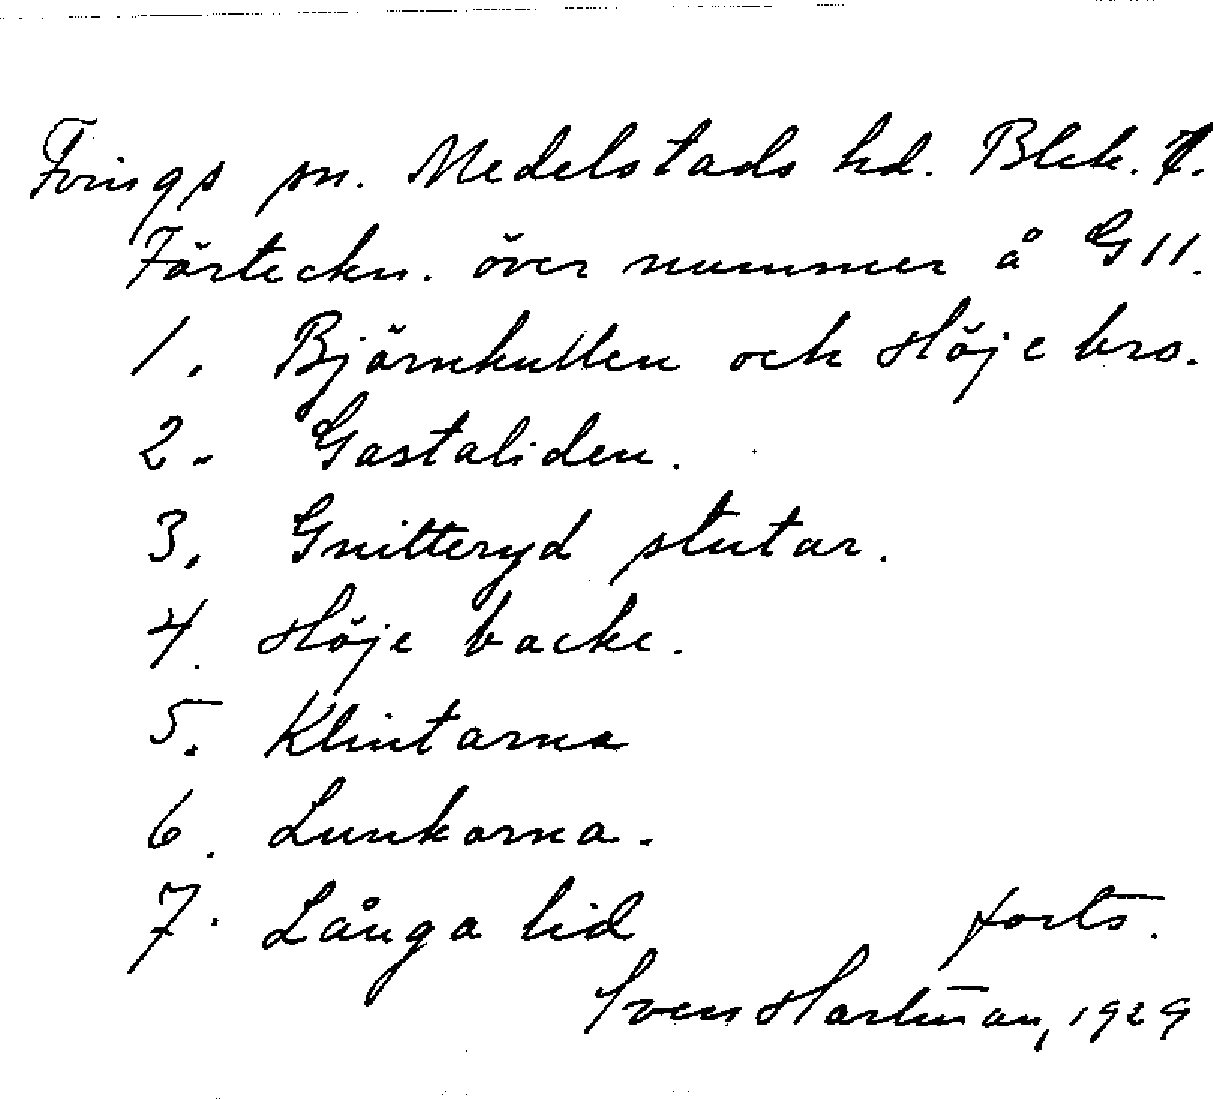 Tvings sn. Medelstads hd. Blek. l.
Förteckn. över nummer å G 11.
1. Björnkullen och Höje bro.
2. Gastaliden.
3. Gnitteryd slutar.
4. Höje backe.
5. Klintarna
6. Lunkarna.
7. Långa lid forts.
Sven Hartman, 1929